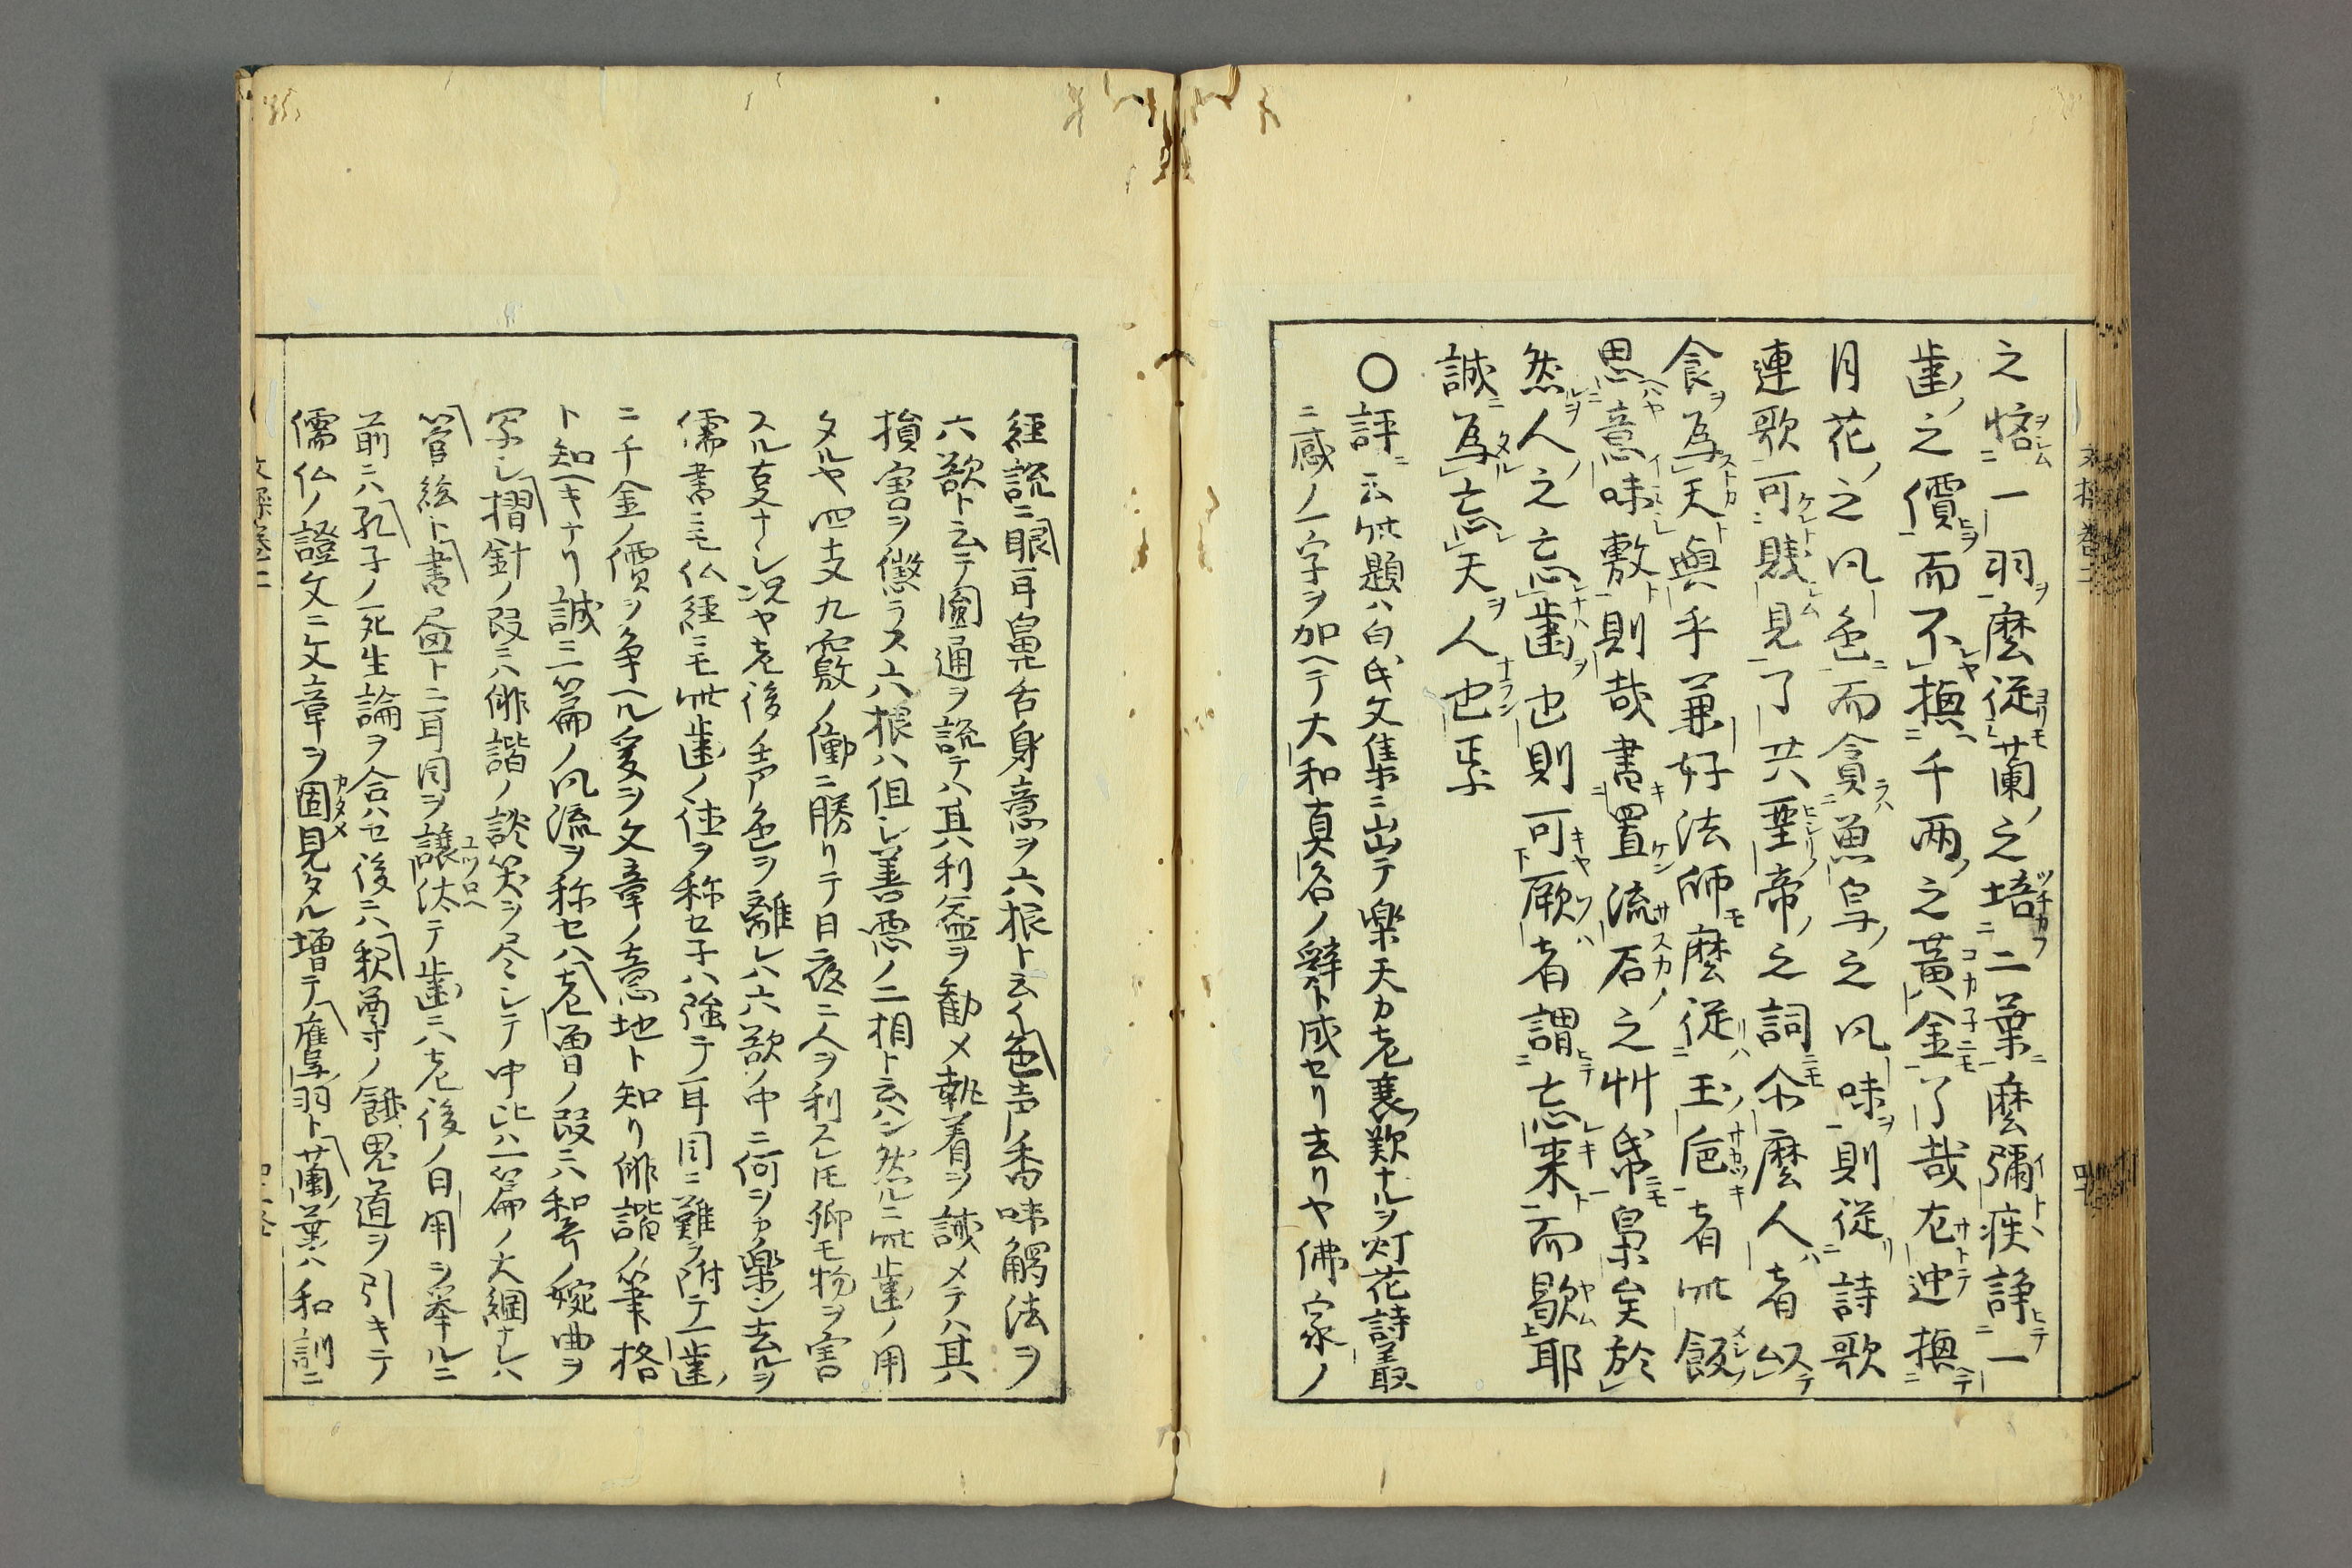 之悋一羽麼従蘭之培二葉麼彌疾諍一
歯之價而不摸千両之黄金了哉左迚摸
月花之凨色而貪魚皇之凨味則従詩歌
連歌可賤見了共堊帝之詞尒麼人者以
食為天與乎兼好法師麼従玉巵者此飯
思意味敷則哉書置流石之艸帋臬矣於
然人之忘歯也則可厥者謂忘来而歇耶
誠為忘天人也焉
○評ニ云此題ハ白氏文集ニ出テ楽天カ老衰ノ歎ナルヲ灯花詩叢
ニ感ノ一字ヲ加ヘテ大和真名ノ辞ト成セリ去リヤ佛家ノ
経説ニ眼耳鼻舌身意ヲ六根ト云イ色声香味觸法ヲ
六欲ト云テ圓通ヲ説テハ其利益ヲ勧メ執着ヲ誡メテハ其
損害ヲ懲ラス六根ハ但シ善悪ノ二相ト云ハン然ルニ此歯ノ用
タルヤ四支九竅ノ働ニ勝リテ日夜ニ人ヲ利スレ𪜈卿モ物ヲ害
スル叓ナシ况ヤ老後ノ声色ヲ離レハ六欲ノ中ニ何ヲカ楽ン去ルヲ
儒書ニモ仏経ニモ此歯ノ徳ヲ称セ子ハ強テ耳目ニ難ヲ附テ一歯ノ
ニ千金ノ價ヲ争ヘル爰ヲ文章ノ意地ト知リ俳諧ノ筆格
ト知ヘキナリ誠ニ一篇ノ凨流ヲ称セハ老曽ノ段ニハ和哥ノ婉曲ヲ
写シ摺針ノ段ニハ俳諧ノ談笑ヲ尽シテ中比ハ一篇ノ大綱ナレハ
管絃ト書畫ト二耳目ヲ譲汰テ歯ニハ老後ノ日用ヲ挙ルニ
前ニハ孔子ノ死生論ヲ合ハセ後ニハ釈尊ノ餓鬼道ヲ引キテ
儒仏ノ證文ニ文章ヲ固見タル増テ鷹ノ羽ト蘭ノ葉ハ和訓ニ